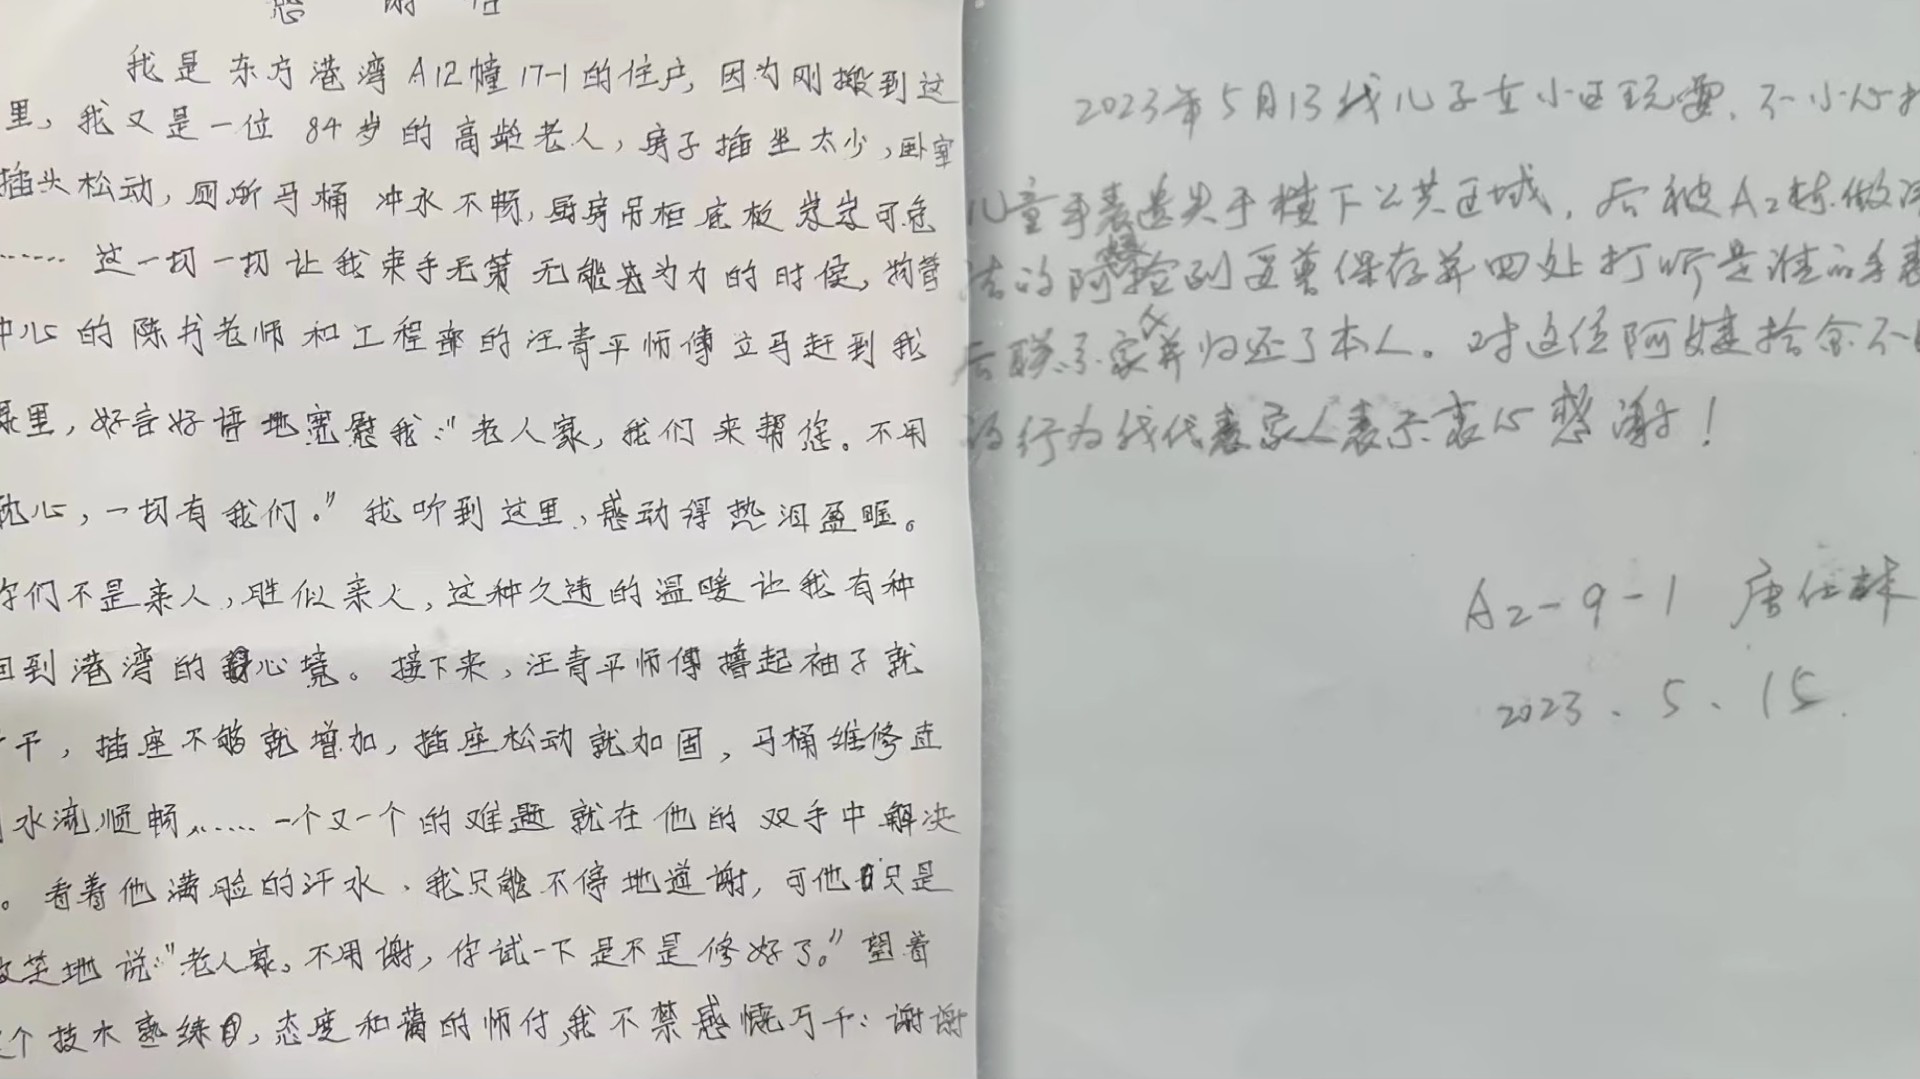 感谢信
我是东方港湾A12幢17-1的住户，因为刚搬到这
里，我又是一位84岁的高龄老人，房子插坐太少，卧室
插头松动，厕所马桶冲水不畅，厨房吊柜底板岌岌可危
……这一切一切让我束手无策无能为力的时候，物管
中心的陈书老师和工程部的汪青平师傅立马赶到我
家里，好言好语地宽慰我："老人家，我们来帮您。不用
忧心，一切有我们。"我听到这里，感动得热泪盈眶。
你们不是亲人，胜似亲人，这种久违的温暖让我有种
回到港湾的心境。接下来，汪青平师傅撸起袖子就
干，插座不够就增加，插座松动就加固，马桶维修
水流顺畅……一个又一个的难题就在他的双手中解决
。看着他满脸的汗水，我只能不停地道谢，可他只是
笑地说："老人家。不用谢，你试一下是不是修好了。"望着
个技术熟练，态度和蔼的师付，我不禁感慨万千：谢谢
2023年5月13我儿子在小区玩耍，不小心
儿童手表遗失于楼下公共区域，后被A2栋做
洁的阿捡到妥善保存并四处打听是谁的手表
后联系家人并归还了本人。对这位阿姨拾金不
的行为我代表家人表示衷心感谢！
A2-9-1 唐仕林
2023、5、15.